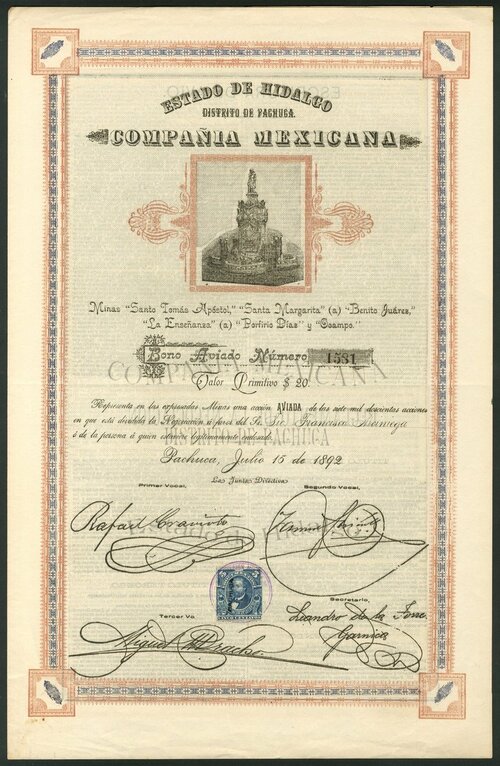 ESTADO DE HIDALGO
DISTRITO DE PACHUCA.
COMPAÑIA MEXICANA
Minas "Santo Tomás Apóstol," "Santa Margarita" (a) "Benito Juárez,"
"La Enseñanza" (a) "Porfirio Díaz" y "Ocampo."
Bono Aviado Número 1531
COMPAÑIA MEXICANA
Valor Primitivo $ 20.
Representa en las expresadas Minas una acción AVIADA de las siete mil doscientas acciones
en que está dividida la Negociación á favor del Sr. Francisco
DISTRITO DE PACHUCA
ó de la persona á quien estuviere legítimamente endosado.
Pachuca, Julio 15 de 1892
La Junta Directiva
Primer Vocal, Segundo Vocal,
Rafael Cravioto
Secretario,
Tercer Vo
Leandro de la Torre
Garnica
Miguel